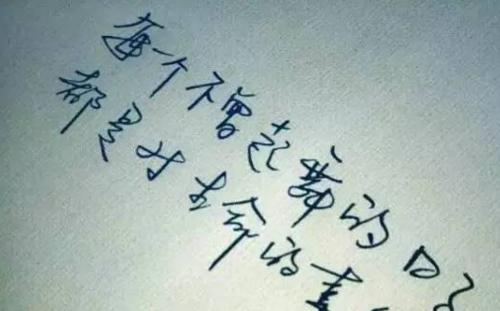 每个不曾起舞的日
都是对生命的